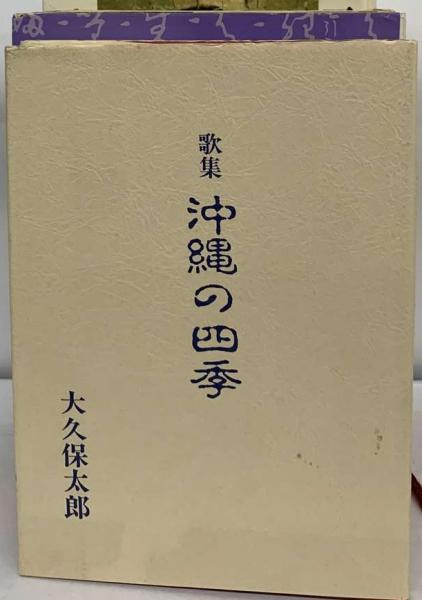 歌集
沖縄の四季
大久保太郎